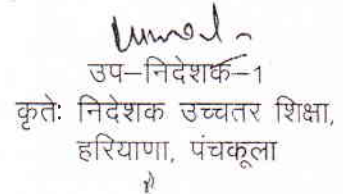 उप–निदेशक–1
कृतेः निदेशक उच्चतर शिक्षा,
हरियाणा, पंचकूला